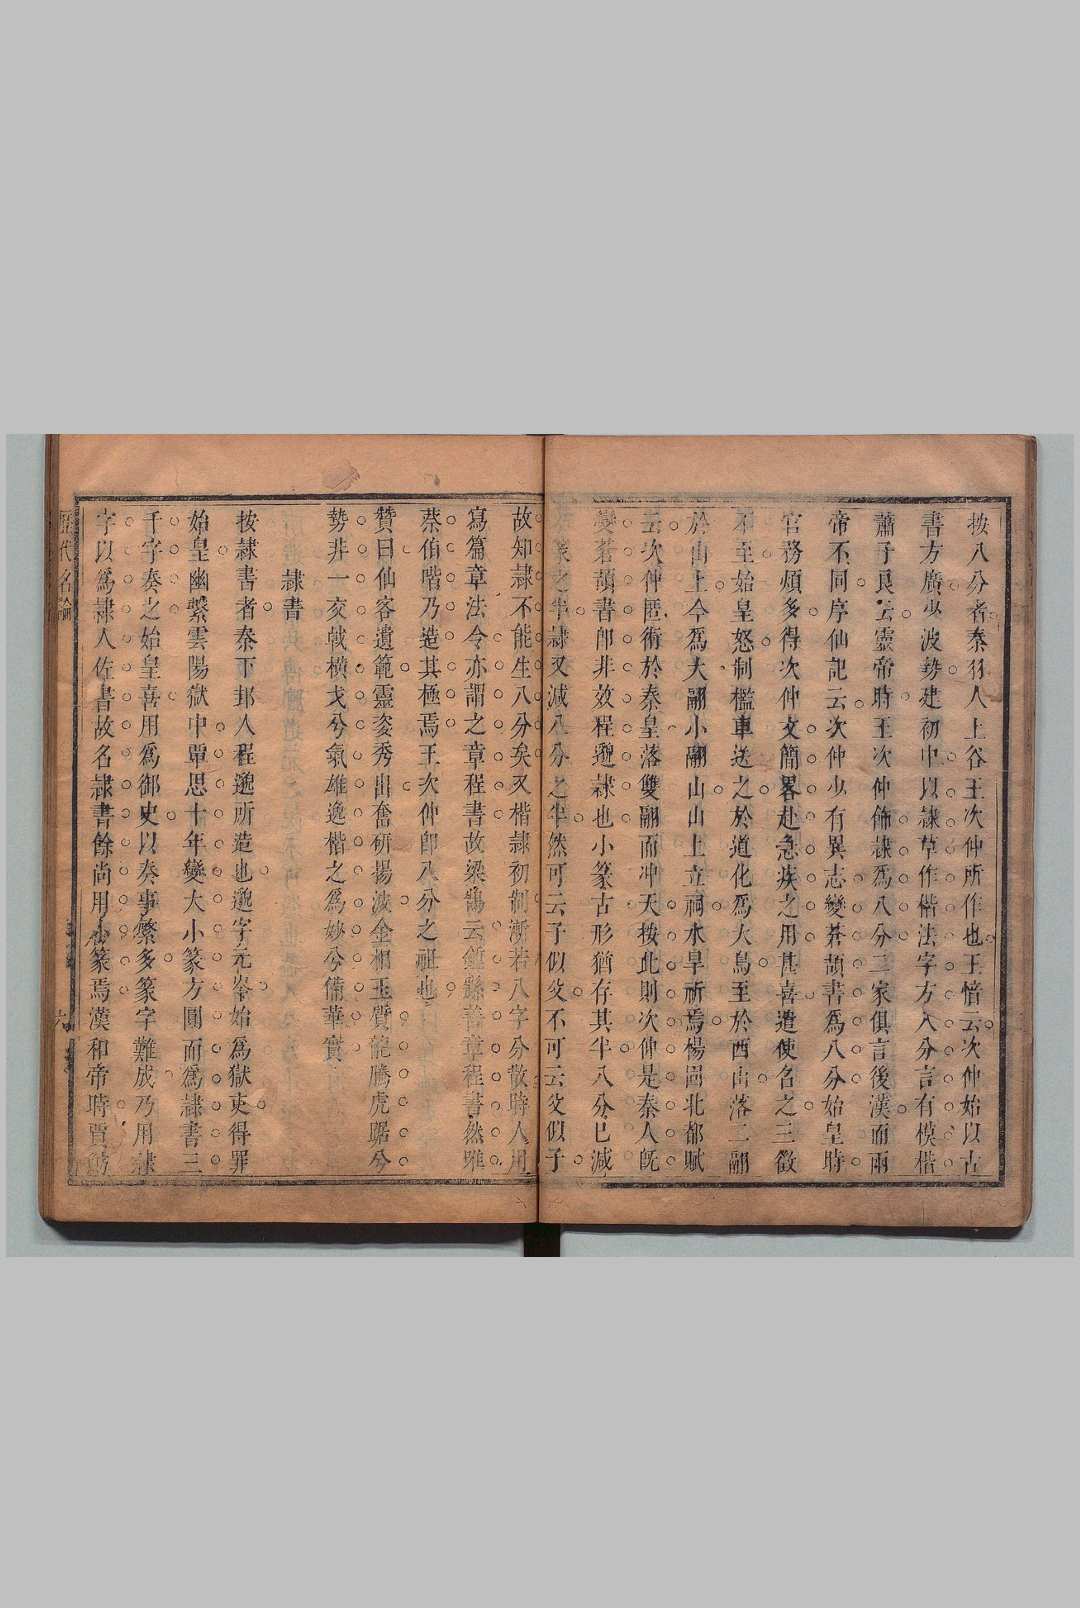 按八分者秦羽人上谷王次仲所作也王愔云次仲始以古
書方廣少波勢建初中以隸草作楷法字方八分言有模楷
蕭子良云靈帝時王次仲飾隸爲八分二家俱言後漢而兩
帝不同序仙記云次仲少有異志變蒼頡書爲八分始皇時
官務煩多得次仲文簡畧赴急疾之用甚喜遣使名之三徵
不至始皇怒制檻車送之於道化爲大鳥至於西出落二翮
於山上今爲大翮小翮山山上立祠水旱祈焉楊固北都賦
云次仲匿術於秦皇落雙翮而冲天按此則次仲是秦人旣
變蒼頡書卽非效程邈隸也小篆古形猶存其半八分已減
之半隸又減八分之半然可云子似父不可云父似子
故知隸不能生八分矣又楷隸初制漸若八字分散時人用
寫篇章法令亦謂之章程書故梁鵠云鍾繇善章程書然雖
蔡伯喈乃造其極焉王次仲卽八分之祖也
贊曰仙客遺範靈姿秀出奮研揚波金相玉質龍騰虎踞兮
勢非一交戟橫戈兮氣雄逸楷之爲妙兮備華實
隸書
按隸書者秦下邽人程邈所造也邈字元岑始爲獄吏得罪
始皇幽繫雲陽獄中單思十年變大小篆方圓而爲隸書三
千字奏之始皇喜用爲御史以奏事繁多篆字難成乃用隸
字以爲隸人佐書故名隸書餘尚用小篆焉漢和帝時賈魴
歷代名
六